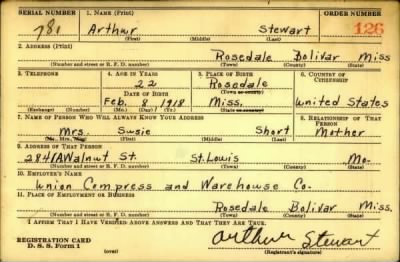 SERIAL NUMBER 1. NAME (Print) ORDER NUMBER
781 Arthur Stewart 126
(First) (Middle) (Last)
2. ADDRESS (Print)
Rosedale Bolivar Miss
(Number and street or R. F. D. number) (Town) (County) (State)
3. TELEPHONE 4. AGE IN YEARS 5. PLACE OF BIRTH 6. COUNTRY OF CITIZENSHIP
22 Rosedale
DATE OF BIRTH (Town or county)
Feb. 8 1918 Miss. United States
(Exchange) (Number) (Mo.) (Day) (Yr.) (State or country)
7. NAME OF PERSON WHO WILL ALWAYS KNOW YOUR ADDRESS 8. RELATIONSHIP OF THAT PERSON
Mrs. Susie Short Mother
(Mr., Mrs., Miss) (First) (Middle) (Last)
9. ADDRESS OF THAT PERSON
2841A Walnut St. St. Louis Mo.
(Number and street or R. F. D. number) (Town) (County) (State)
10. EMPLOYER'S NAME
Union Compress and Warehouse Co.
11. PLACE OF EMPLOYMENT OR BUSINESS
Rosedale Bolivar Miss.
(Number and street or R. F. D. number) (Town) (County) (State)
I AFFIRM THAT I HAVE VERIFIED ABOVE ANSWERS AND THAT THEY ARE TRUE.
REGISTRATION CARD Arthur Stewart
D. S. S. Form 1 (over) (Registrant's signature)